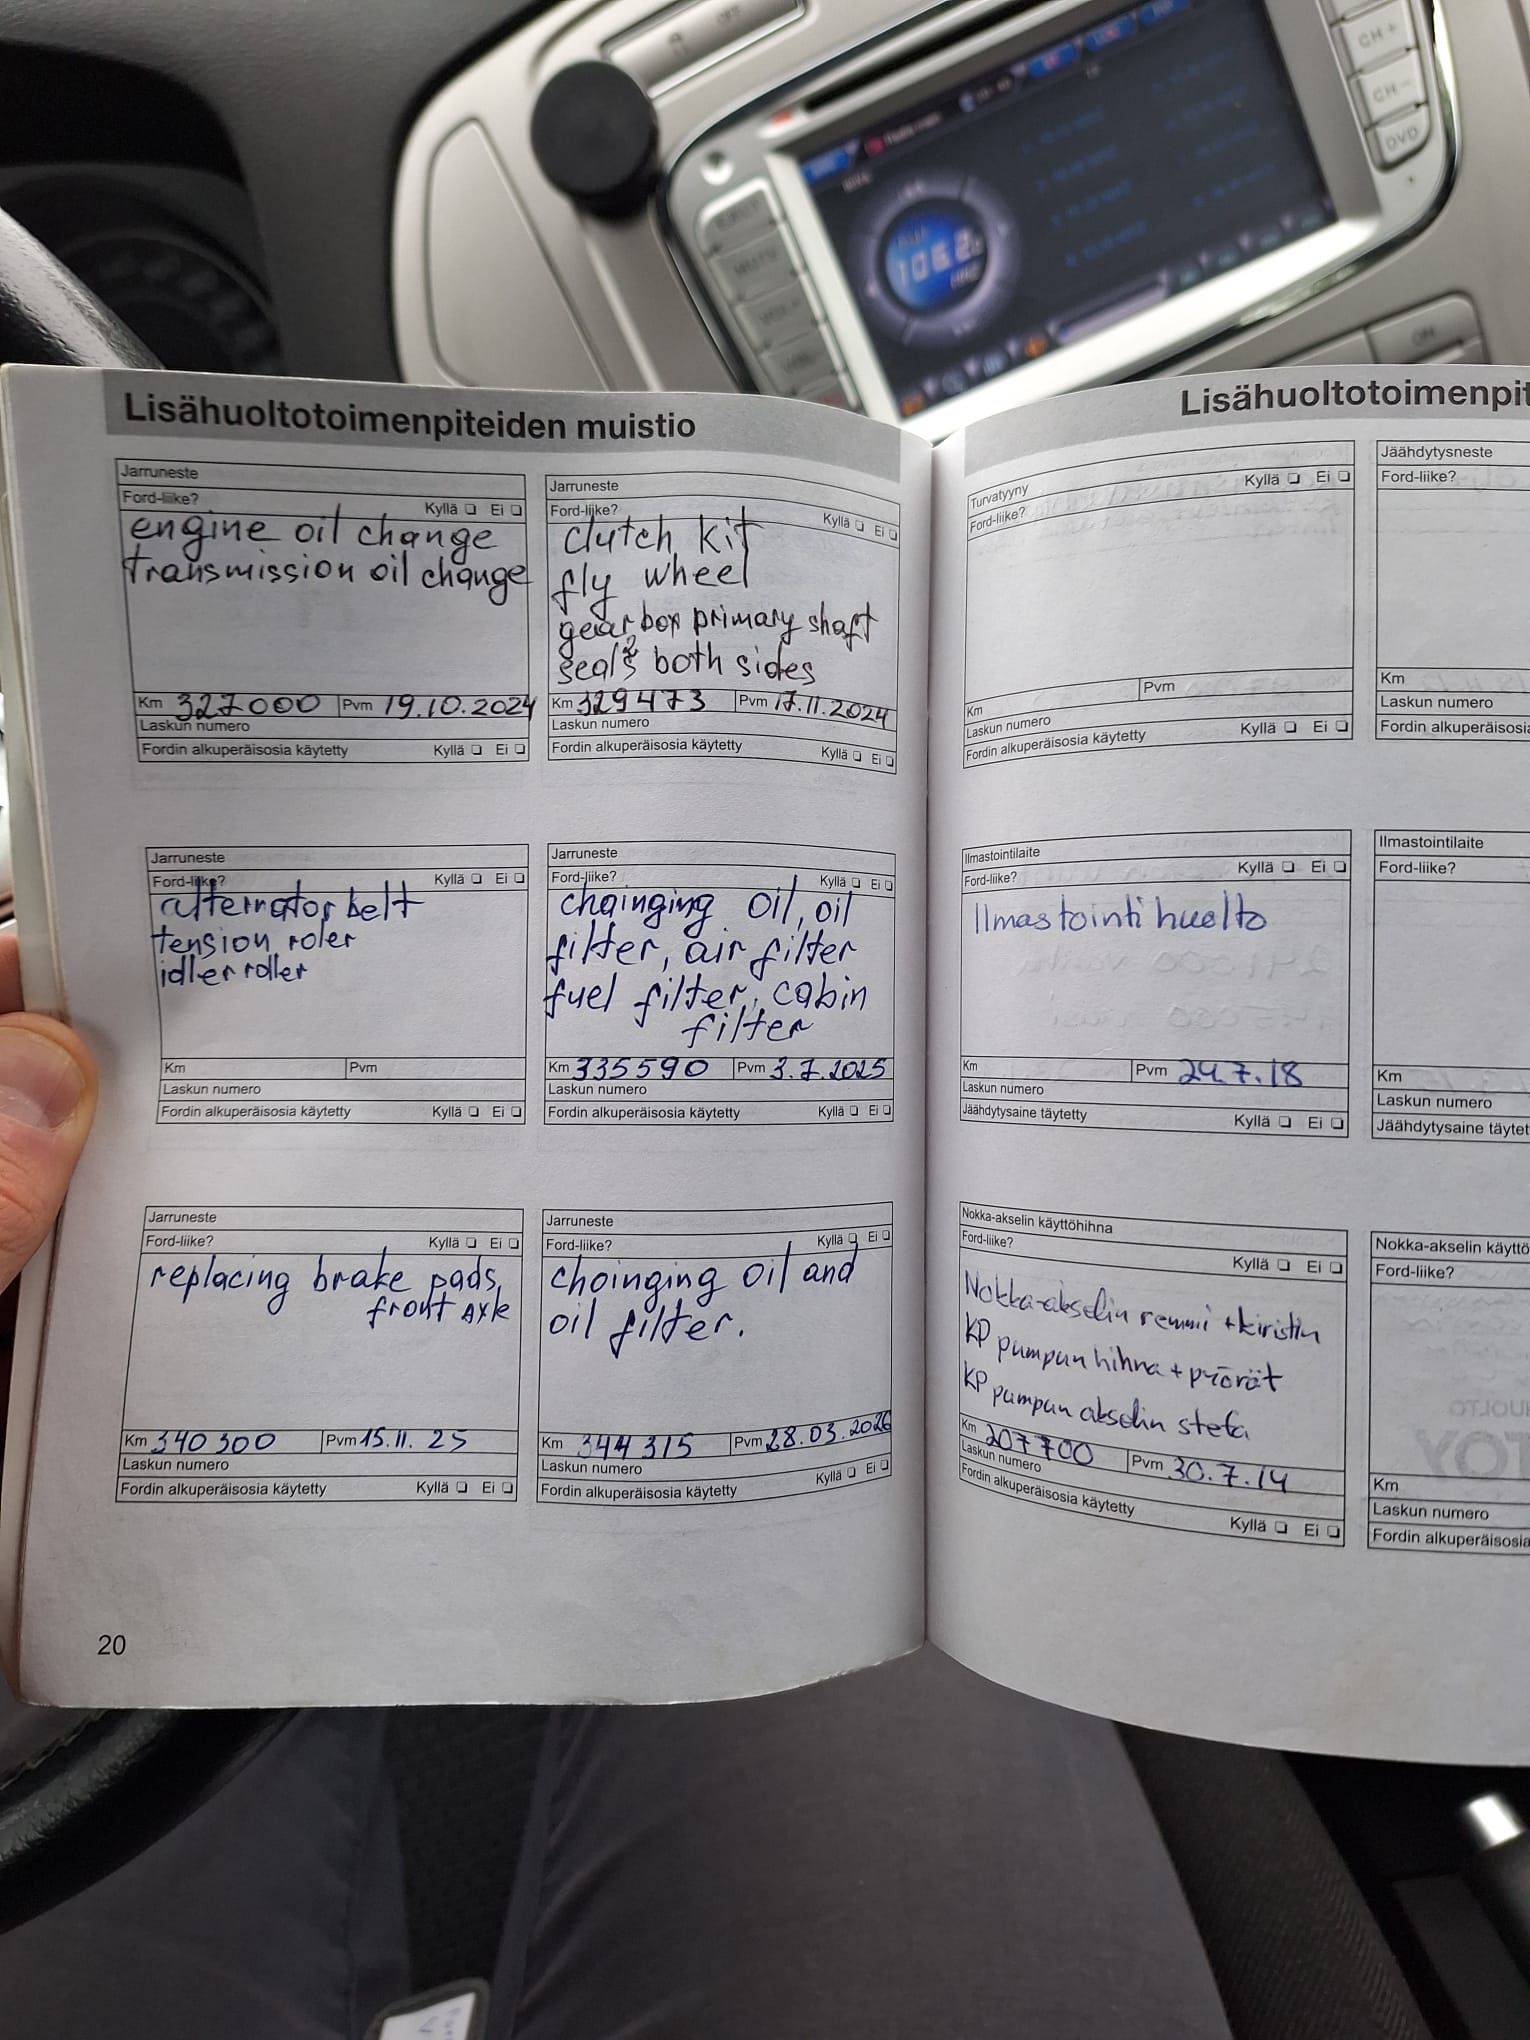 OFF
CH+
CH-
DVD
ON
Lisähuoltotoimenpiteiden muistio
Jarruneste
Ford-liike?
Kyllä ❏ Ei ❏
engine oil change
transmission oil change
Km 327000 Pvm 19.10.2024
Laskun numero
Fordin alkuperäisosia käytetty Kyllä ❏ Ei ❏
Jarruneste
Ford-liike?
Kyllä ❏ Ei ❏
clutch kit
fly wheel
gearbox primary shaft
seals 2 both sides
Km 329473 Pvm 17.11.2024
Laskun numero
Fordin alkuperäisosia käytetty Kyllä ❏ Ei ❏
Jarruneste
Ford-liike? Kyllä ❏ Ei ❏
alternator belt
tension roler
idler roller
Km Pvm
Laskun numero
Fordin alkuperäisosia käytetty Kyllä ❏ Ei ❏
Jarruneste
Ford-liike? Kyllä ❏ Ei ❏
chainging oil, oil
filter, air filter
fuel filter, cabin
filter
Km 335590 Pvm 3.7.2025
Laskun numero
Fordin alkuperäisosia käytetty Kyllä ❏ Ei ❏
Jarruneste
Ford-liike? Kyllä ❏ Ei ❏
replacing brake pads,
front axle
Km 340 300 Pvm 15.11.25
Laskun numero
Fordin alkuperäisosia käytetty Kyllä ❏ Ei ❏
Jarruneste
Ford-liike? Kyllä ❏ Ei ❏
choinging oil and
oil filter.
Km 344 315 Pvm 28.03.2026
Laskun numero
Fordin alkuperäisosia käytetty Kyllä ❏ Ei ❏
20
Lisähuoltotoimenpit
Turvatyyny
Ford-liike? Kyllä ❏ Ei ❏
Km Pvm
Laskun numero
Fordin alkuperäisosia käytetty Kyllä ❏ Ei ❏
Jäähdytysneste
Ford-liike?
Km
Laskun numero
Fordin alkuperäisosia
Ilmastointilaite
Ford-liike? Kyllä ❏ Ei ❏
Ilmastointihuolto
Km Pvm 24.7.18
Laskun numero
Jäähdytysaine täytetty Kyllä ❏ Ei ❏
Ilmastointilaite
Ford-liike?
Km
Laskun numero
Jäähdytysaine täytet
Nokka-akselin käyttöhihna
Ford-liike?
Kyllä ❏ Ei ❏
Nokka-akselin remmi + kiristin
KP pumpun hihna + pyörät
KP pumpun akselin stefa
Km 207700 Pvm 30.7.14
Laskun numero
Fordin alkuperäisosia käytetty
Kyllä ❏ Ei ❏
Nokka-akselin käyttö
Ford-liike?
Km
Laskun numero
Fordin alkuperäisosia